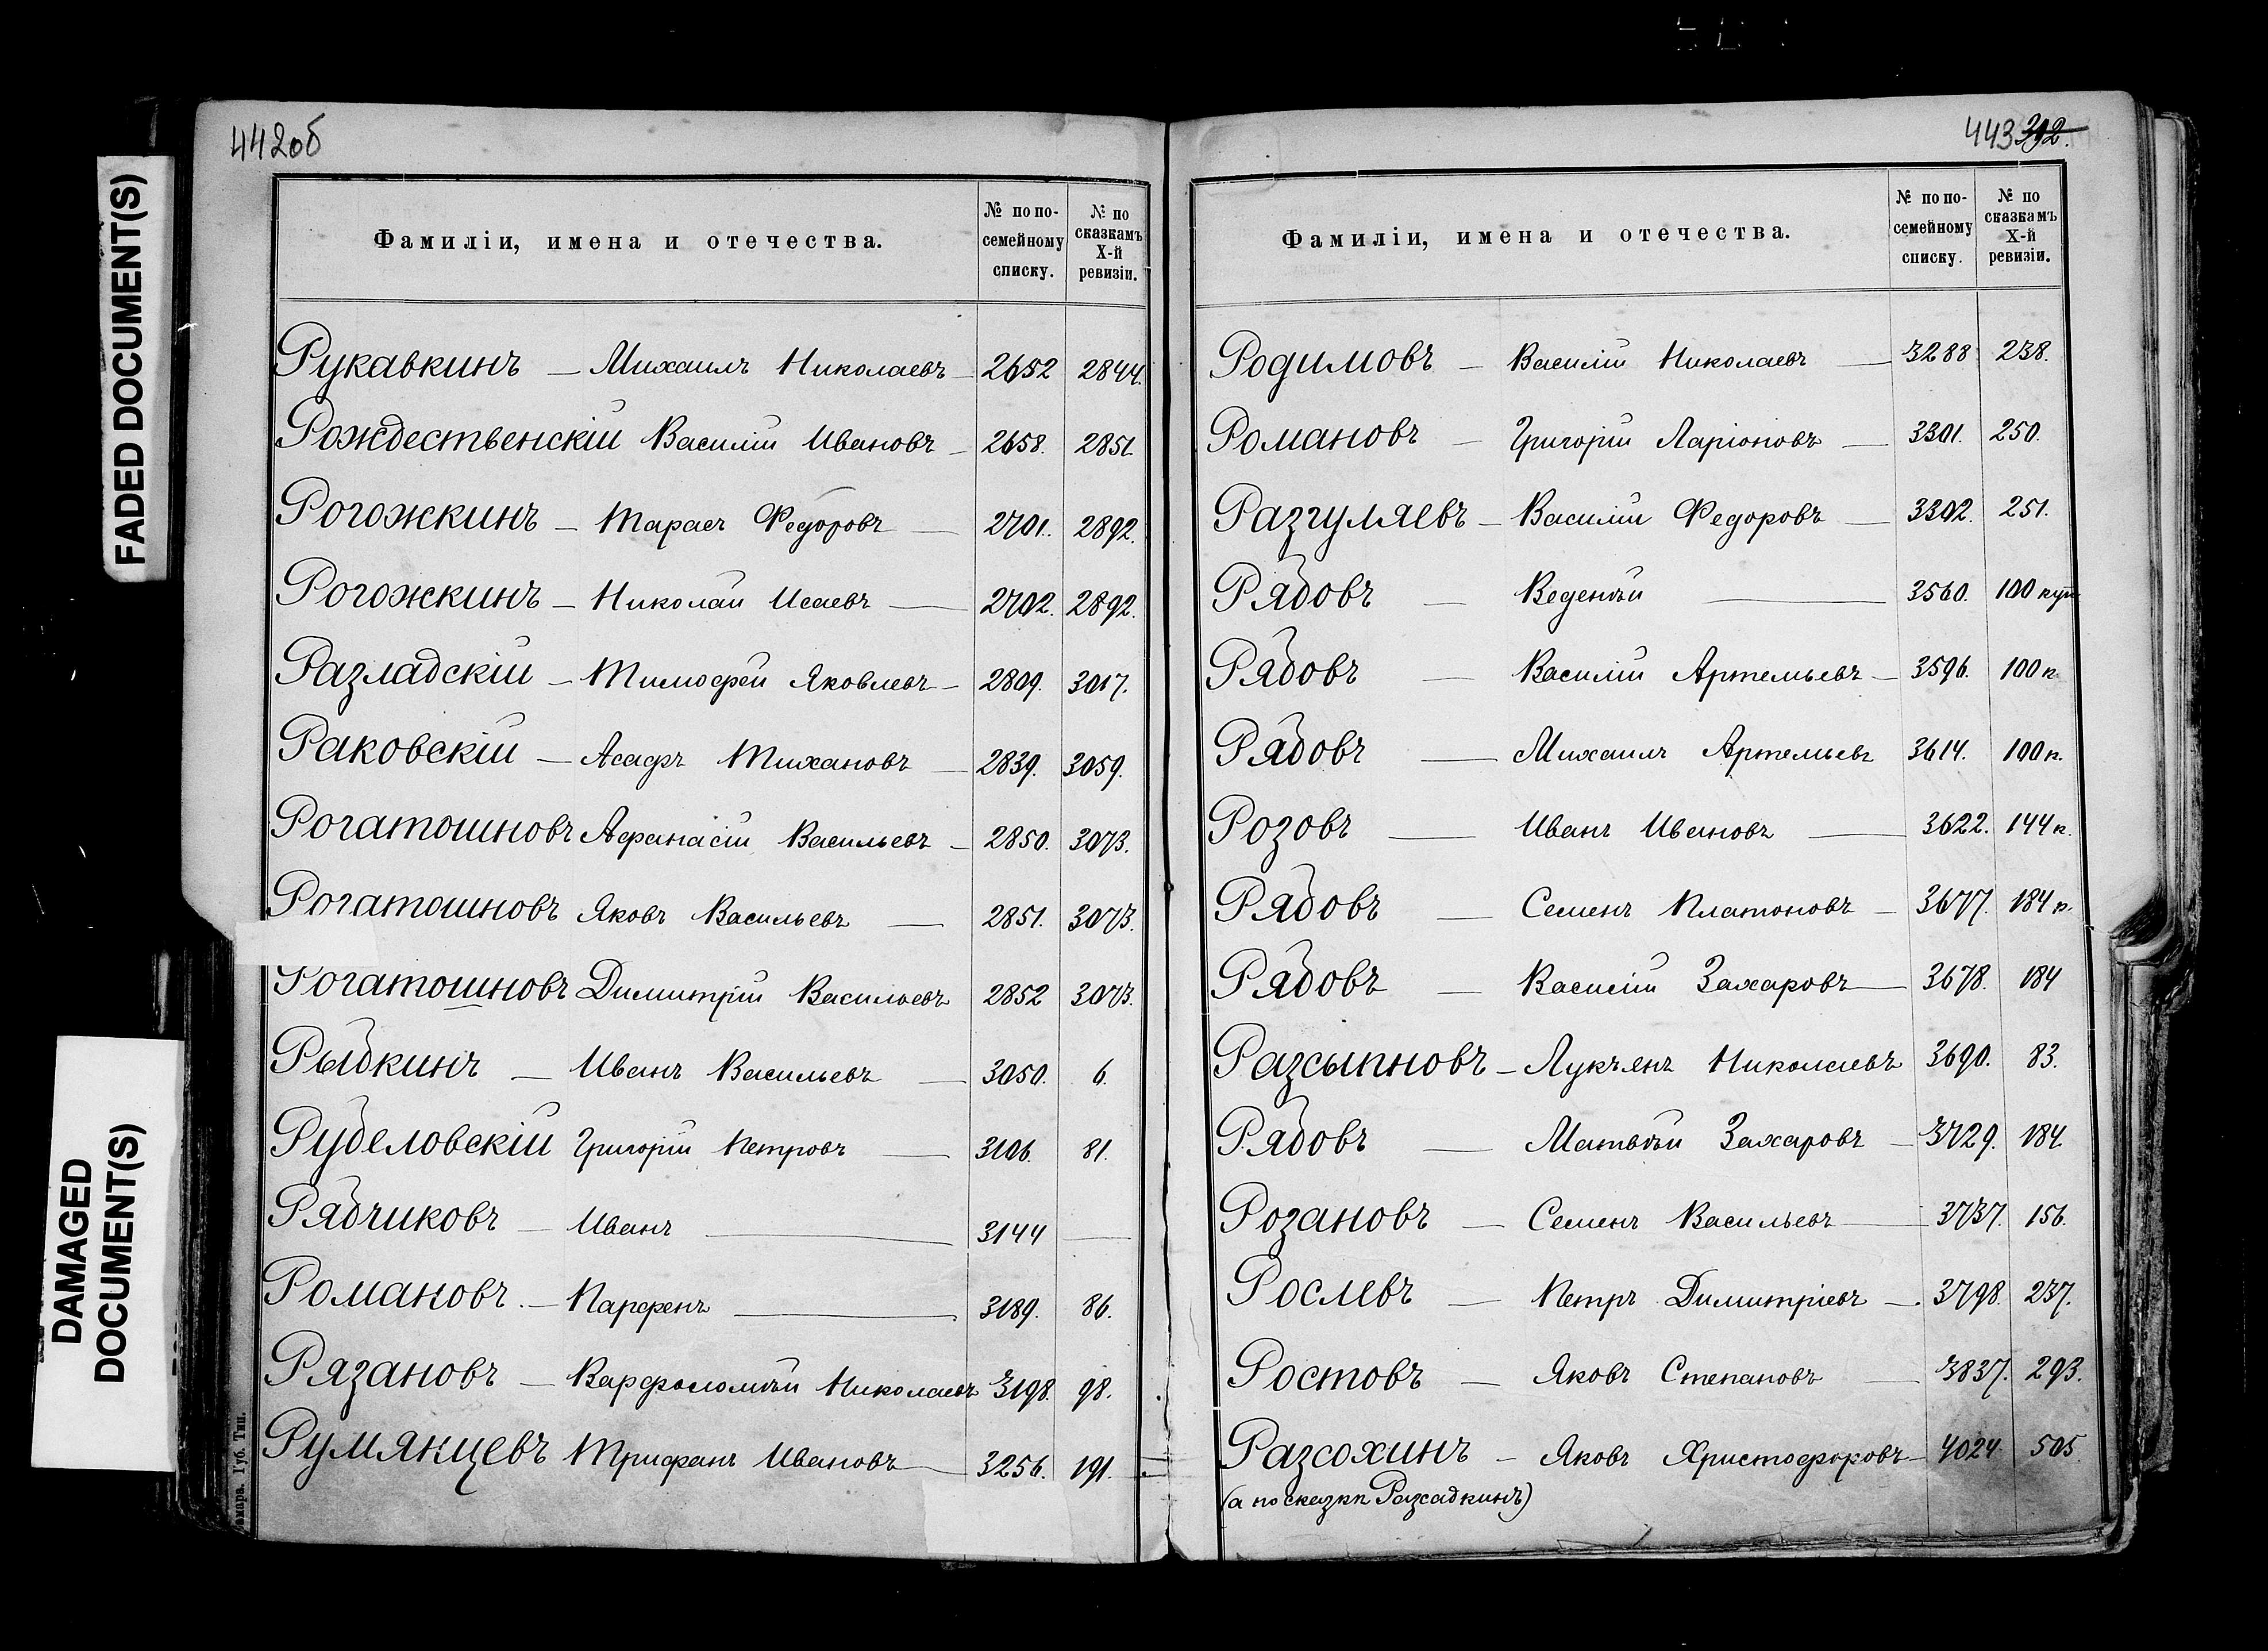 FADED DOCUMENT(S)
DAMAGED
DOCUMENT(S)
442об
Фамиліи, имена и отечества.
№ по по-
семейному
списку.
№ по
сказкамъ
X-й
ревизіи.
Рукавкинъ — Михаилъ Николаевъ — 2652 2844.
Рождественскій Василій Ивановъ — 2658. 2851.
Рогожкинъ — Тарасъ Федоровъ — 2701. 2892.
Рогожкинъ — Николай Исаевъ — 2702. 2892.
Разладскій — Тимофей Яковлевъ — 2809. 3017.
Раковскій — Асафъ Тихановъ — 2839. 3059.
Рогатошновъ Афанасій Васильевъ — 2850. 3073.
Рогатошновъ Яковъ Васильевъ — 2851. 3073.
Рогатошновъ Димитрій Васильевъ 2852 3073.
Рыбкинъ — Иванъ Васильевъ — 3050. 6.
Рубеловскій Григорій Петровъ — 3106. 81.
Рябчиковъ — Иванъ — 3144 —
Романовъ. — Парфенъ — 3189. 86.
Рязановъ — Варфоломѣй Николаевъ 3198. 98.
Румянцевъ Трифанъ Ивановъ — 3256. 191.
Самара. Губ. Тип.
443 392.
Фамиліи, имена и отечества.
№ по по-
семейному
списку.
№ по
сказкамъ
X-й
ревизіи.
Родимовъ — Василій Николаевъ — 3288 238.
Романовъ — Григорій Ларіоновъ — 3301. 250.
Разгуляевъ — Василій Федоровъ — 3302. 251.
Рябовъ — Веденѣй — 3560. 100 куп
Рябовъ — Василій Артемьевъ — 3596. 100 к
Рябовъ — Михаилъ Артемьевъ 3614. 100 к.
Розовъ — Иванъ Ивановъ — 3622. 144 к.
Рябовъ — Семенъ Платоновъ — 3677. 184 к.
Рябовъ — Василій Захаровъ — 3678. 184
Разсыпновъ — Лукъянъ Николаевъ 3690. 83.
Рябовъ — Матвѣй Захаровъ — 3729. 184.
Розановъ — Семенъ Васильевъ — 3737. 156.
Рослевъ — Петръ Димитріевъ — 3798. 237.
Ростовъ — Яковъ Степановъ — 3837. 293.
Разсохинъ — Яковъ Христофоровъ — 4024 505.
(а по сказкѣ Разсадкинъ)